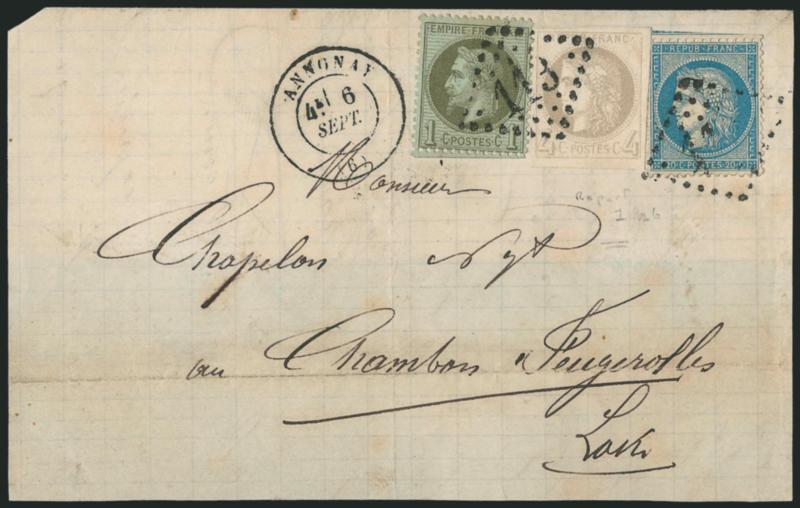 ANNONAY
6
SEPT.
(6)
EMPIRE FRANC
1 C POSTES C 1
FRANC
4 C POSTES C 4
REPUB FRANC
20 C POSTES 20 C
Monsieur
Chapelon Ngt
au Chambon Feugerolles
Loire